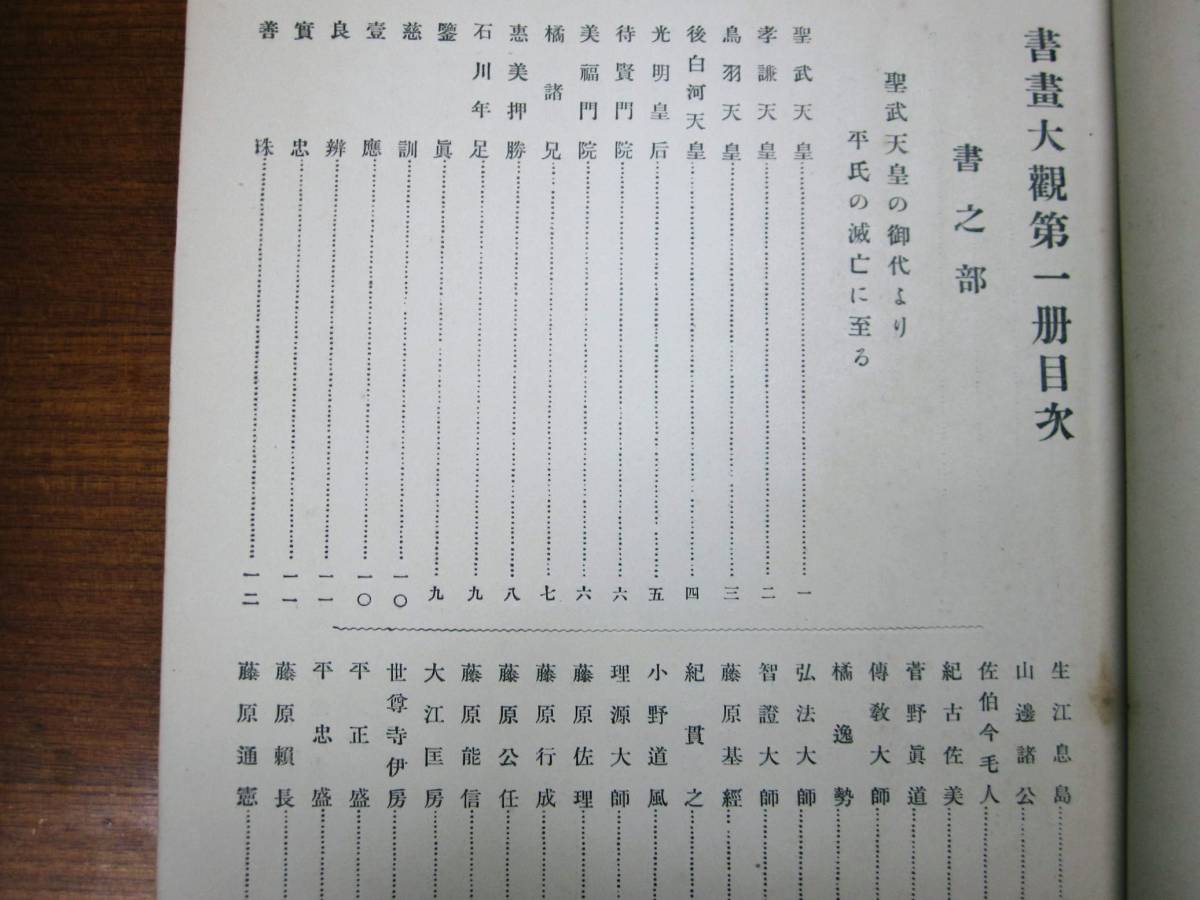 書畫大觀第一册目次
書之部
聖武天皇の御代より
平氏の滅亡に至る
聖武天皇……一
孝謙天皇……二
鳥羽天皇……三
後白河天皇……四
光明皇后……五
待賢門院……六
美福門院……六
橘諸兄……七
惠美押勝……八
石川年足……九
鑒眞……九
慈訓……一〇
壹應……一〇
良辨……一一
實忠……一一
善珠……一二
生江息島
山邊諸公
佐伯今毛人
紀古佐美
菅野眞道
傳敎大師
橘逸勢
弘法大師
智證大師
藤原基經
紀貫之
小野道風
理源大師
藤原佐理
藤原行成
藤原公任
藤原能信
大江匡房
世尊寺伊房
平正盛
平忠盛
藤原賴長
藤原通憲